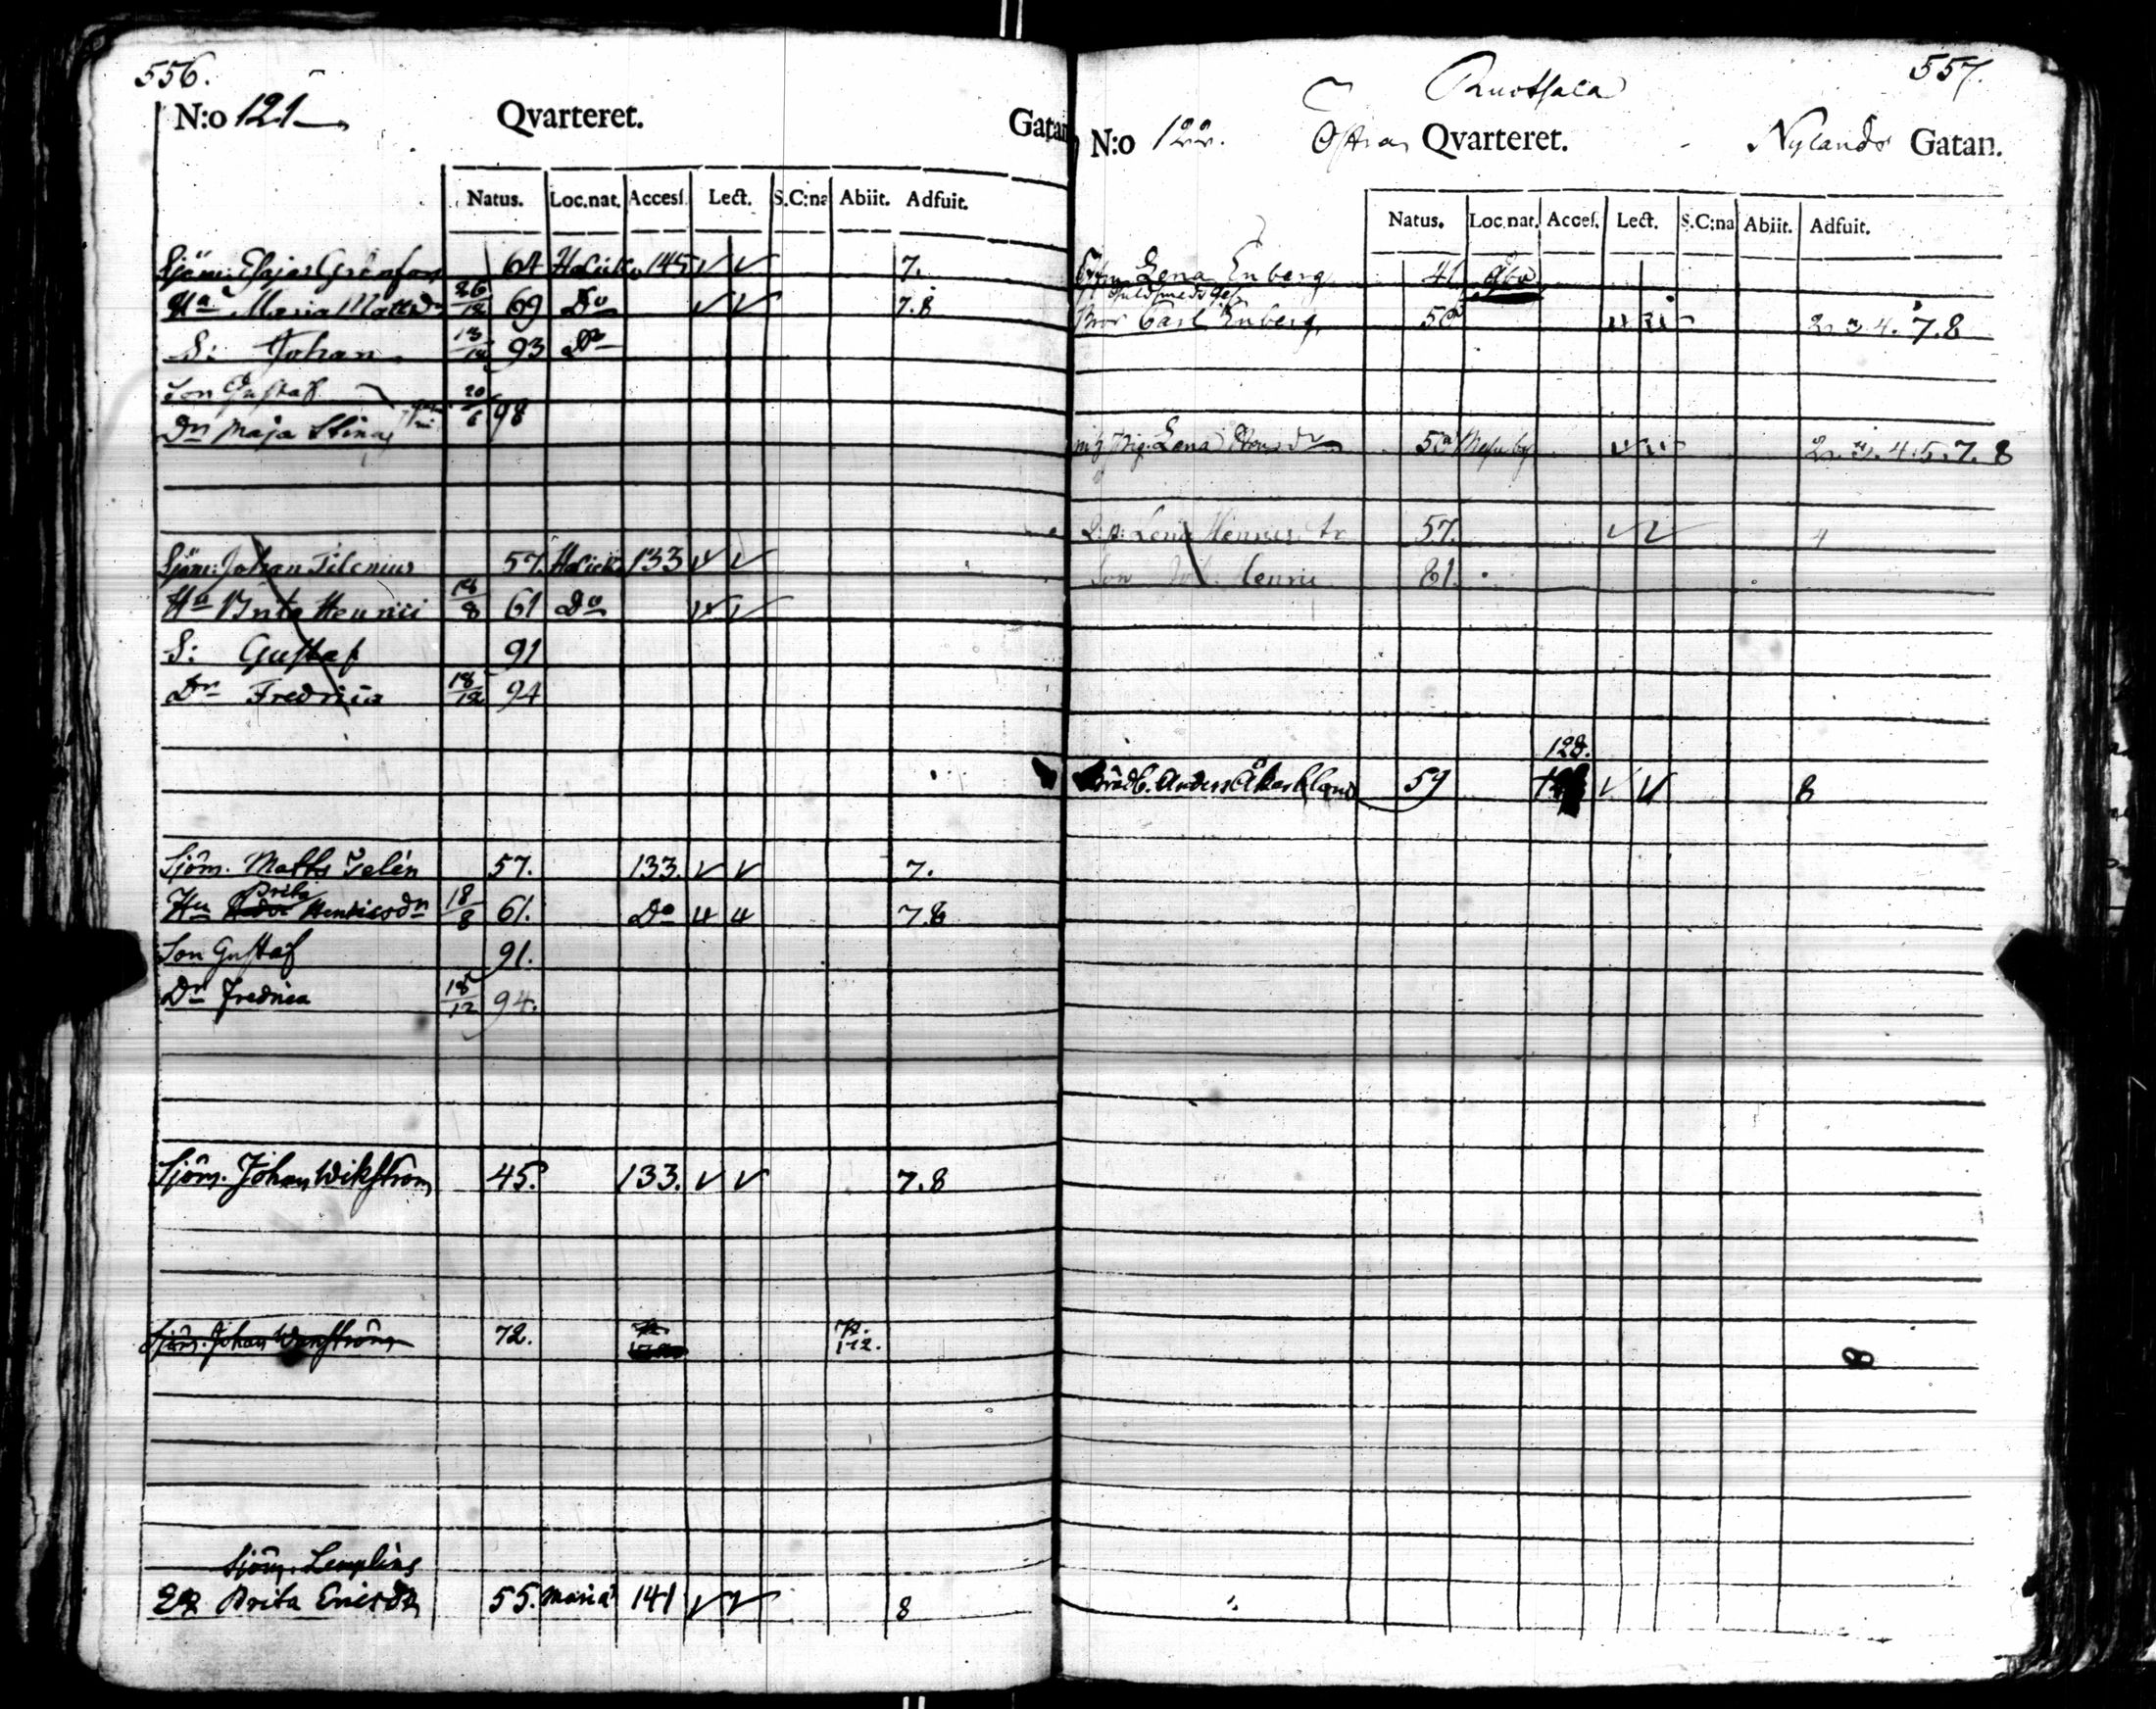 556.
N:o 121 Qvarteret. Gatan
Natus. Loc.nat. Accesſ. Lect. S.C:na Abiit. Adfuit.
Sjöm: 64 145 7.
Hu Maria Mattsdr 26/12 69 Do 7.8
S: Johan 18/12 93 Do
Son Gustaf 20/6 98
Dr Maja Stina
Sjöm: Johan Tilenius 57. 133
Hu Brita Henrici 18/8 61 Do
S: Gustaf 91
Dr Fredrica 18/12 94
Sjöm. Matts Telén 57. 133. 7.
Hu Brita Henricsdr 18/8 61. Do 7.8
Son Gustaf 91.
Dr Fredrica 18/12 94.
Sjöm. Johan Wikström 45. 133. 7.8
Sjöm. Johan 72. 72. 172.
Sjöm. Lemplins
Brita Ericsdr 55. Maria 141 8
557.
Ruotsala
N:o 122. Östra Qvarteret. Nylands Gatan.
Natus. Loc.nat. Acceſ. Lect. S.C:na Abiit. Adfuit.
Lena Enberg 41 Åbo
Guldsmeds Ges.
Bror Carl Enberg. 50 2. 3. 4. 7.8
Pig. Lena 50 2. 3. 4. 5. 7. 8
Lena Henricsdr 57. 4
Son Henric 81.
128.
Anders Åkerblom 59 8